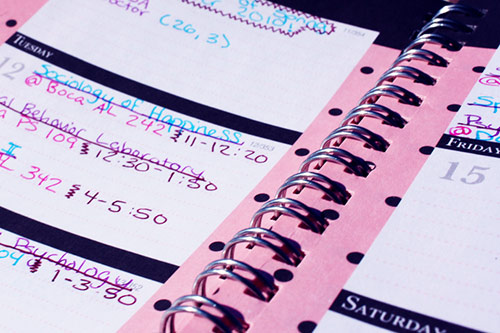 (26,3)
11/354
TUESDAY
12
Sociology of Happiness
@ Boca AL 242 11-12:20
12/353
Behavior Laboratory
PS 109 12:30-1:50
I
AL 342 4-5:50
Psychology
1-3:50
FRIDAY
15
SATURDAY